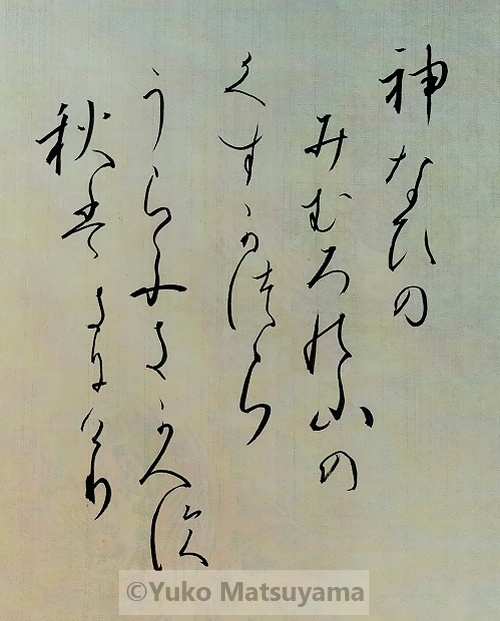 神なひの
みむろの山の
くすかつら
うらふきかへす
秋はきにけり
©Yuko Matsuyama